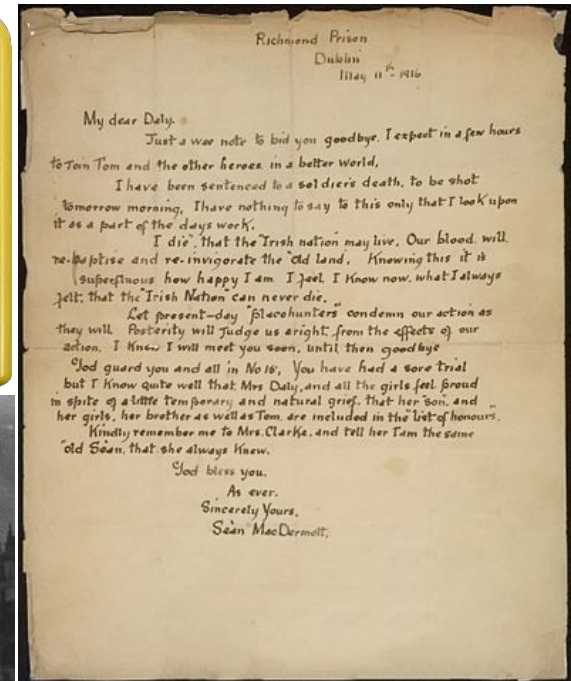 Richmond Prison
Dublin
May 11th - 1916
My dear Daly.
Just a wee note to bid you goodbye. I expect in a few hours
to Join Tom and the other heroes. in a better world,
I have been sentenced to a soldiers death. to be shot
tomorrow morning, I have nothing to say to this only that I look upon
it as a part of the days work.
I die", that the "Irish nation" may live. Our blood. will.
re-baptise and re-invigorate the "old land. Knowing this it is
superfluous how happy I am. I feel, I know now, what I always
felt, that the "Irish Nation" can never die.
Let present-day "placehunters" condemn our action as
they will. Posterity will Judge us aright, from the effects of our
action. I Know I will meet you soon, until then goodbye
God guard you and all in No 15. You have had a sore trial
but I Know quite well that Mrs Daly, and all the girls feel proud
in spite of a little temporary and natural grief. that her son. and
her girls, her brother as well as Tom. are included in the "list of honours".
Kindly remember me to Mrs. Clarke, and tell her I am the same
"old Seàn, that she always Knew.
God bless you.
As ever.
Sincerely Yours.
Seàn MacDermott.